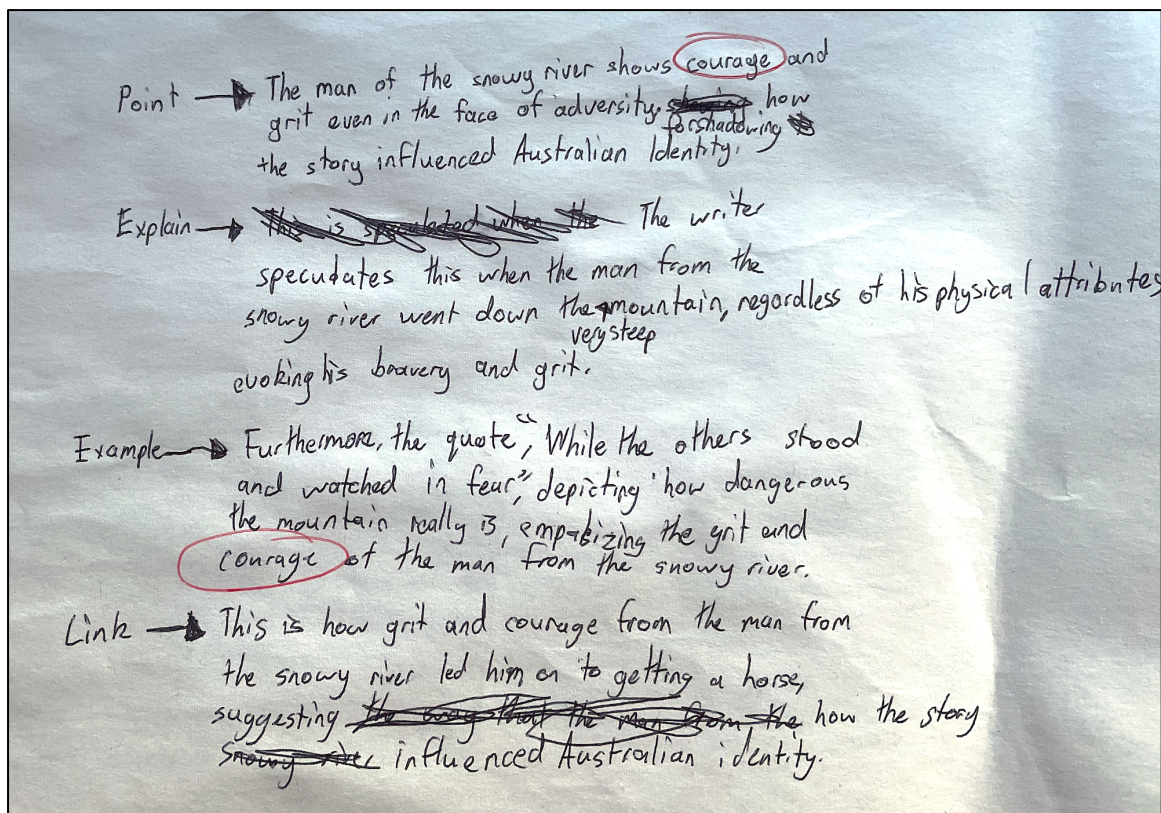 Point → The man of the snowy river shows courage and
grit even in the face of adversity, forshadowing how
the story influenced Australian Identity.
Explain → This is speculated when the The writer
specudates this when the man from the
snowy river went down the very steep mountain, regardless of his physical attributes
evoking his bravery and grit.
Example → Furthermore, the quote, "While the others stood
and watched in fear", depicting how dangerous
the mountain really is, empasizing the grit and
courage of the man from the snowy river.
Link → This is how grit and courage from the man from
the snowy river led him on to getting a horse,
suggesting the way that the man from the how the story
Snowy river influenced Australian identity.